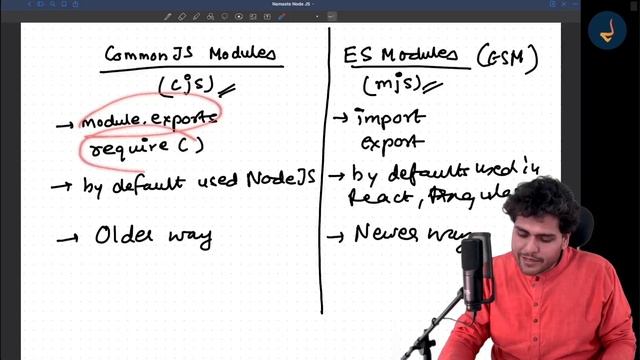 Namaste Node JS
CommonJS Modules
(cjs)
→ module.exports
require()
→ by default used NodeJS
→ Older way
ES Modules (ESM)
(mjs)
→ import
export
→ by defaults used in
React, Angular
→ Newer way